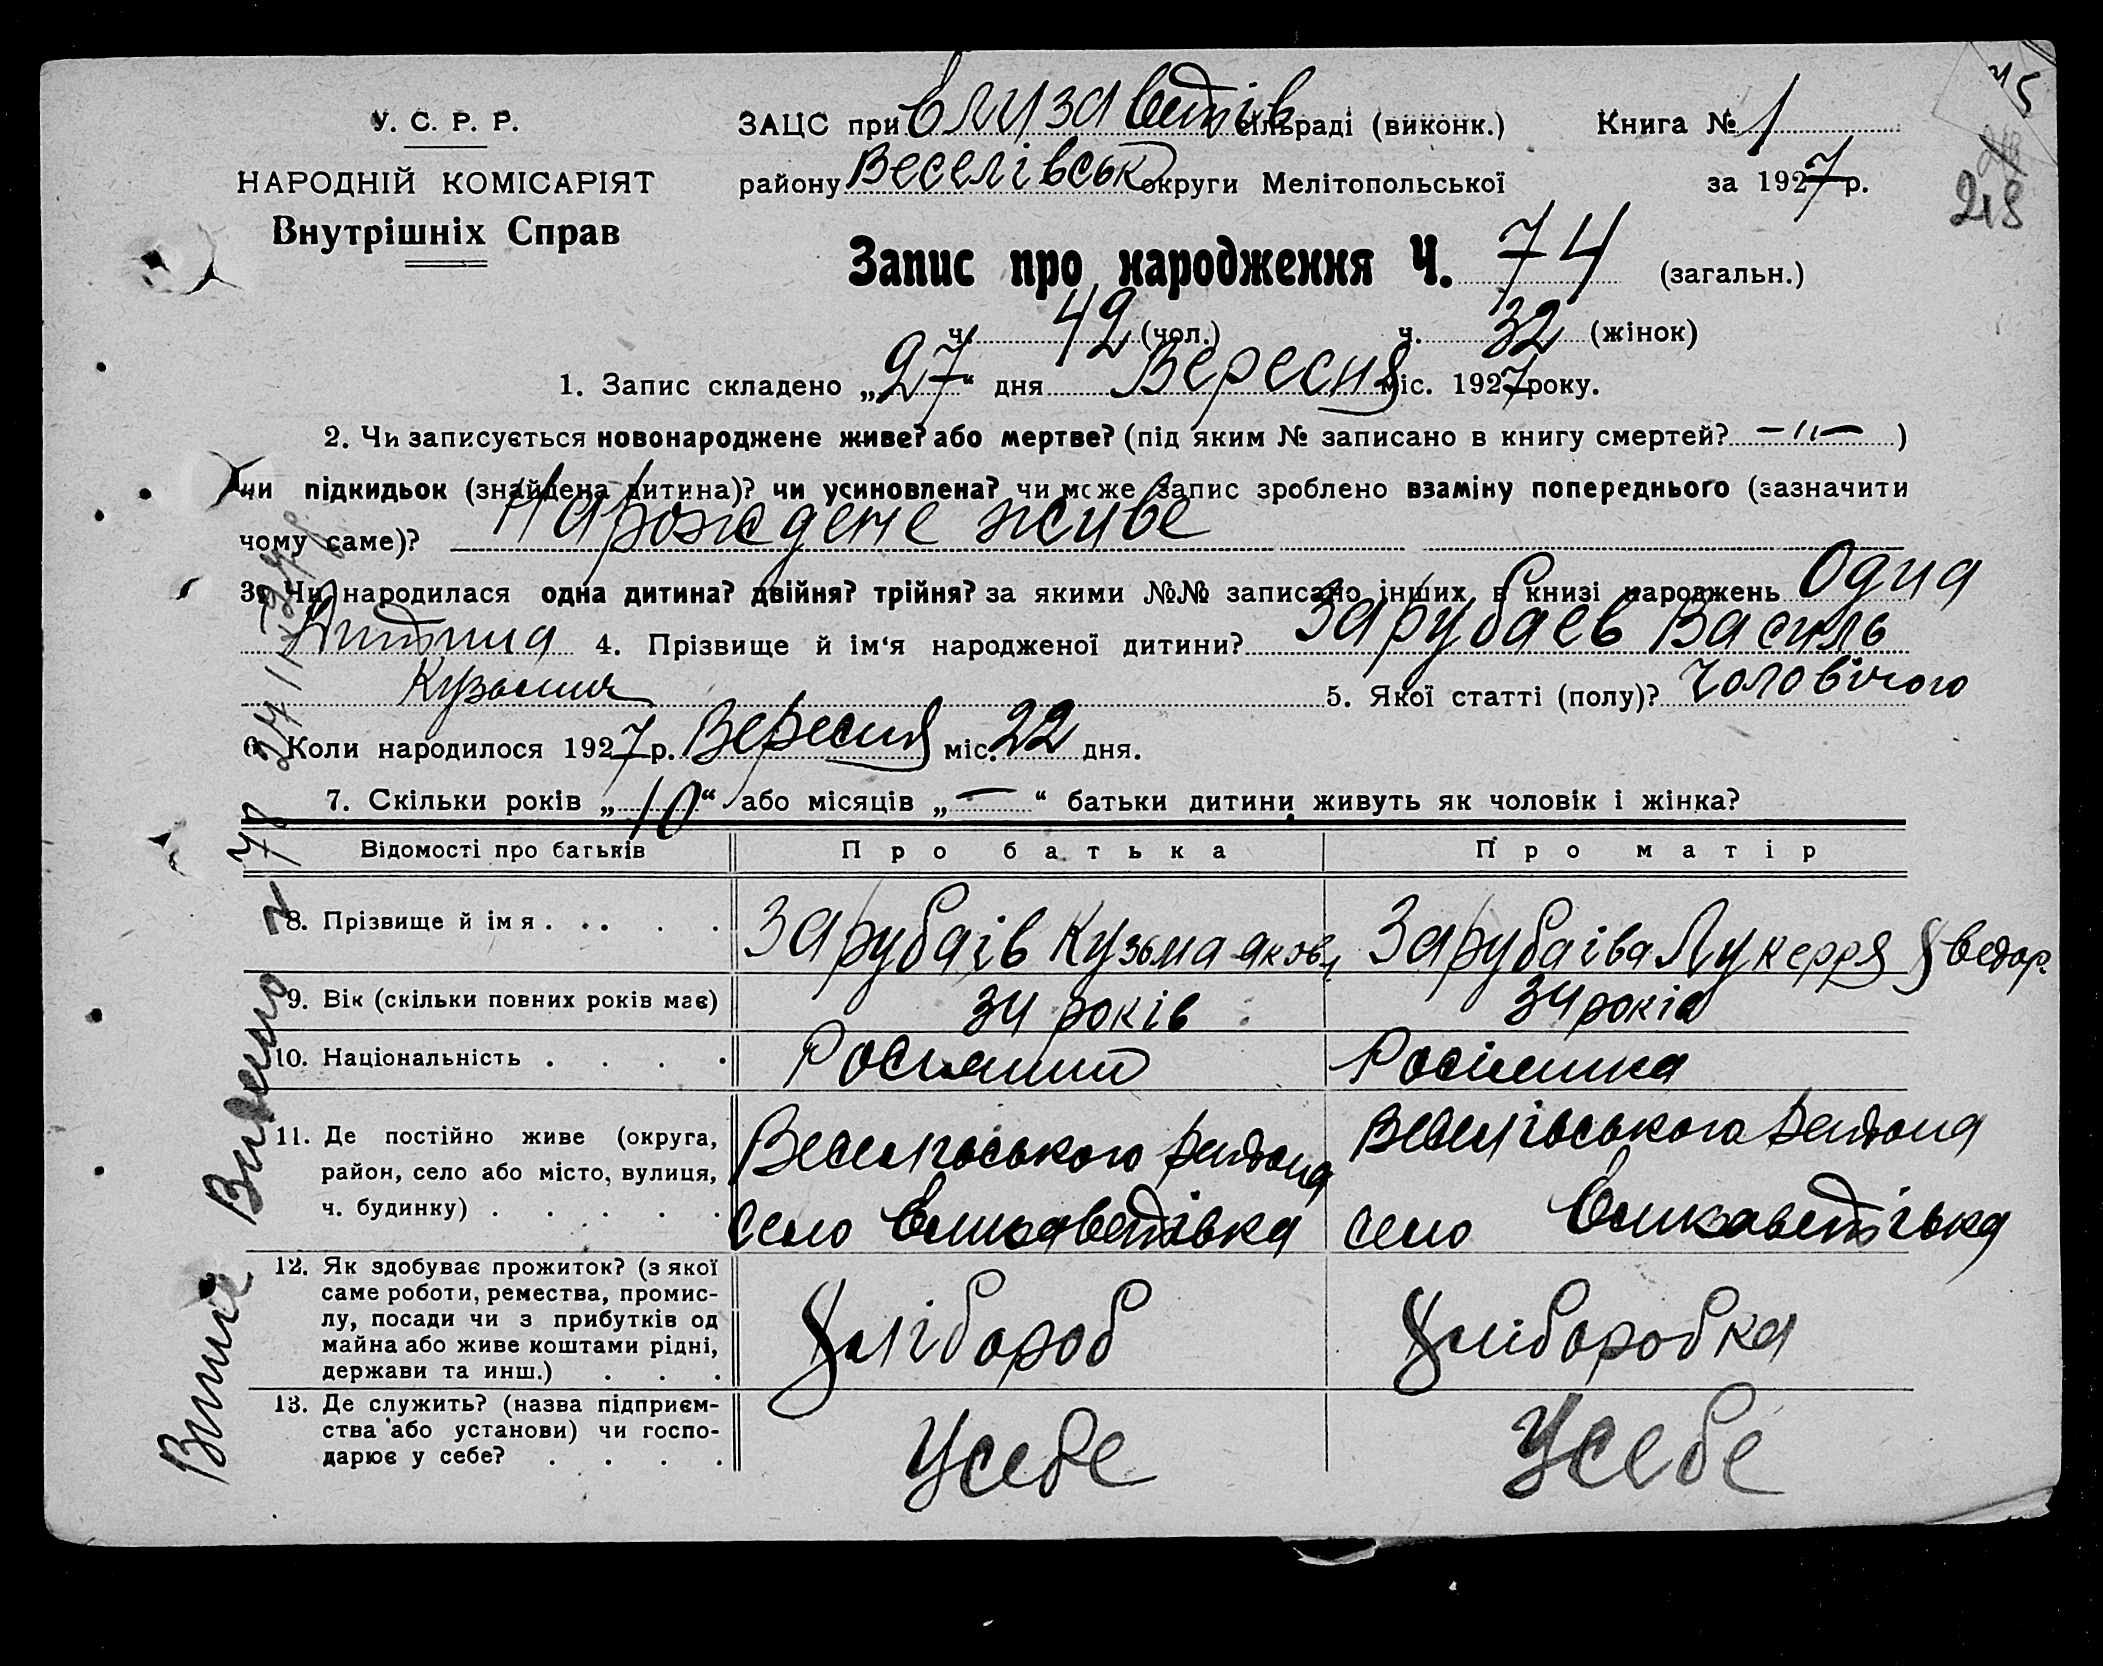 У. С. Р. Р.
НАРОДНІЙ КОМІСАРІЯТ
Внутрішніх Справ
ЗАЦС при Єлизаветів сільраді (виконк.)
району Веселівськ округи Мелітопольської
Книга № 1
за 1927 р.
45
218
Запис про народження Ч. 74 (загальн.)
ч. 42 (чол.) ч. 32 (жінок)
1. Запис складено „27“ дня Вересня міс. 1927 року.
2. Чи записується новонароджене живе? або мертве? (під яким № записано в книгу смертей? —"— )
чи підкидьок (знайдена дитина)? чи усиновлена? чи може запис зроблено взаміну попереднього (зазначити
чому саме)? Нарождене живе
3. Чи народилася одна дитина? двійня? трійня? за якими №№ записано інших в книзі народжень Одна
Дитина 4. Прізвище й ім‘я народженої дитини? Зарубаєв Василь
Кузьмич 5. Якої статті (полу)? Чоловічого
6. Коли народилося 1927 р. Вересня міс. 22 дня.
7. Скільки років „10“ або місяців „—“ батьки дитини живуть як чоловік і жінка?
Відомості про батьків Про батька Про матір
8. Прізвище й імя . . . . . Зарубаів Кузьма Яковл Зарубаіва Лукерря Хведор.
9. Вік (скільки повних років має) 34 років 34 років
10. Національність . . . . Росіянин Росіянка
11. Де постійно живе (округа, район, село або місто, вулиця, ч. будинку) . . . . . Веселівського района село Єлизаветівка Веселівського района село Єлизаветівка
12. Як здобуває прожиток? (з якої саме роботи, ремества, промислу, посади чи з прибутків од майна або живе коштами рідні, держави та инш.) . . . Хлібороб Хліборобка
13. Де служить? (назва підприємства або установи) чи господарює у себе? . . . . У себе У себе